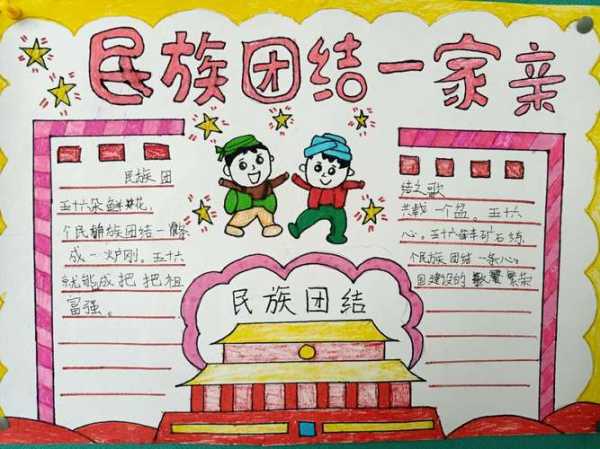 民族团结一家亲
民族团
五十六朵鲜花,
个民族团结一
成一炉刚。五十六
就能成把把祖
富强。
结之歌
共载一个盆。五十六
心,五十六种矿石炼
个民族团结一条心,
国建设的繁荣
民族团结